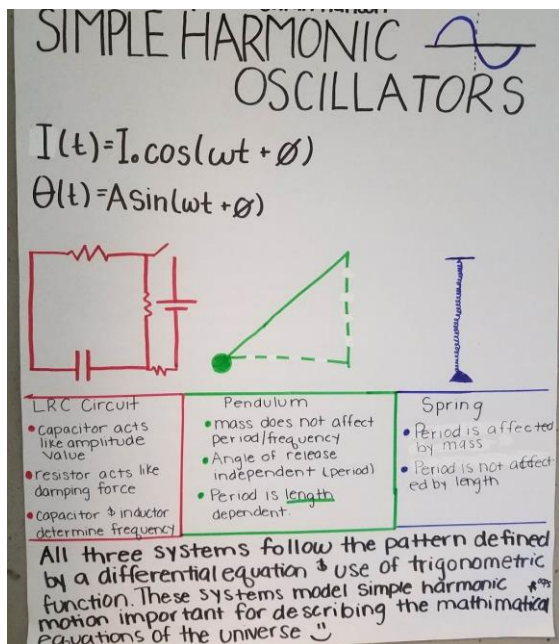 SIMPLE HARMONIC
OSCILLATORS
I(t)=I₀cos(ωt+ø)
θ(t)=Asin(ωt+ø)
LRC Circuit
• capacitor acts
like amplitude
value
• resistor acts like
damping force
• capacitor & inductor
determine frequency
Pendulum
• mass does not affect
period/frequency
• Angle of release
independent (period)
• Period is length
dependent.
Spring
• Period is affected
by mass
• Period is not affect
ed by length
All three systems follow the pattern defined
by a differential equation & use of trigonometric
function. These systems model simple harmonic
motion important for describing the mathimatical
equations of the universe